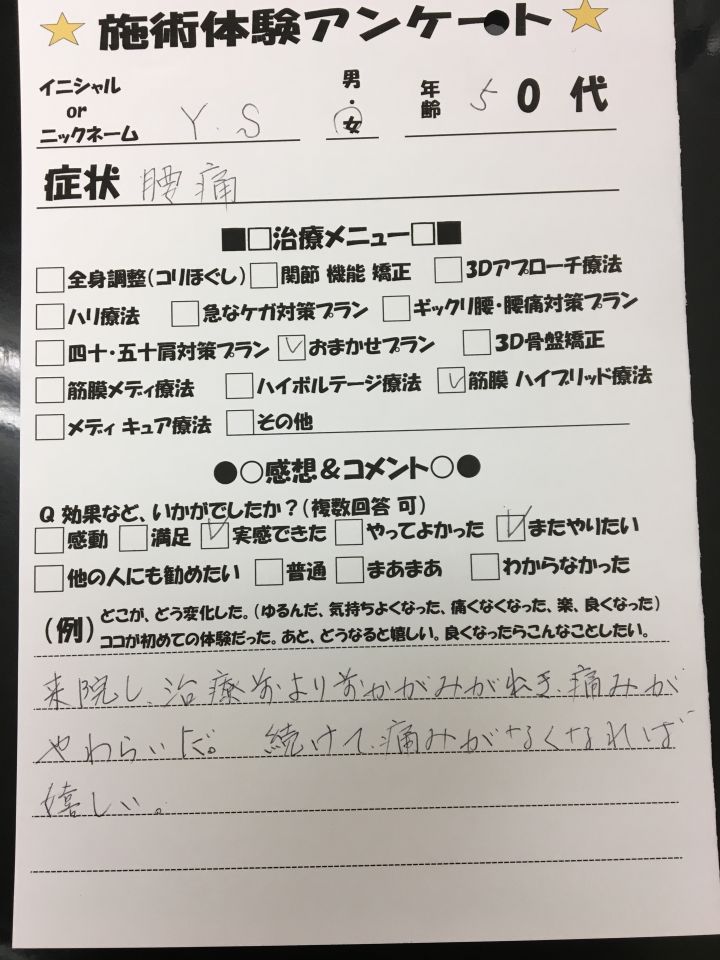 施術体験アンケート
イニシャル or ニックネーム Y.S 男・女 年齢 50代
症状 腰痛
■□治療メニュー□■
全身調整(コリほぐし) 関節 機能 矯正 3Dアプローチ療法
ハリ療法 急なケガ対策プラン ギックリ腰・腰痛対策プラン
四十・五十肩対策プラン おまかせプラン 3D骨盤矯正
筋膜メディ療法 ハイボルテージ療法 筋膜 ハイブリッド療法
メディ キュア療法 その他
●○感想&コメント○●
Q 効果など、いかがでしたか?(複数回答 可)
感動 満足 実感できた やってよかった またやりたい
他の人にも勧めたい 普通 まあまあ わからなかった
(例) どこが、どう変化した。(ゆるんだ、気持ちよくなった、痛くなくなった、楽、良くなった)
ココが初めての体験だった。あと、どうなると嬉しい。良くなったらこんなことしたい。
来院し、治療前より前かがみができ、痛みが
やわらいだ。 続けて、痛みがなくなれば
嬉しい。